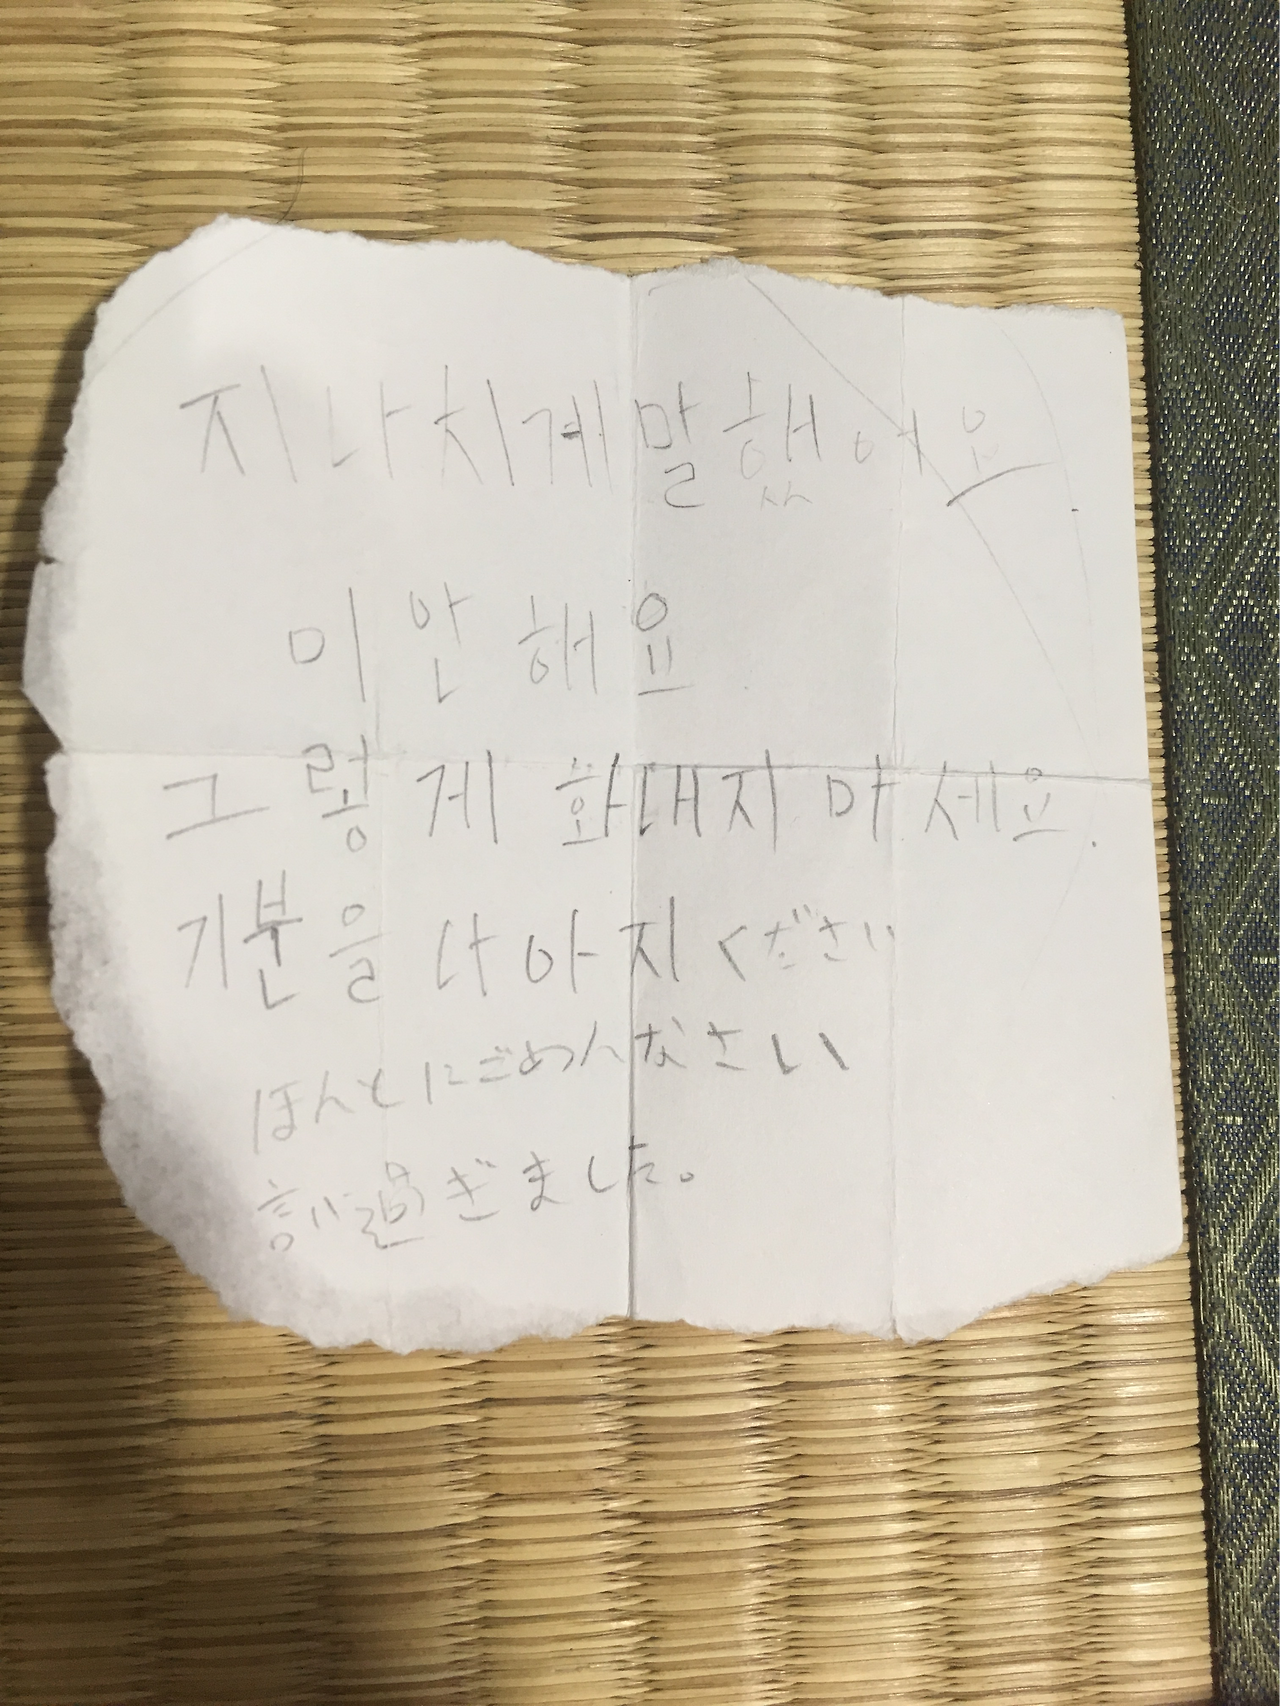 지나치게 말했어요
미안해요
그렇게 화내지 마세요.
기분을 나아지ください
ほんとにごめんなさい
言い過ぎました。